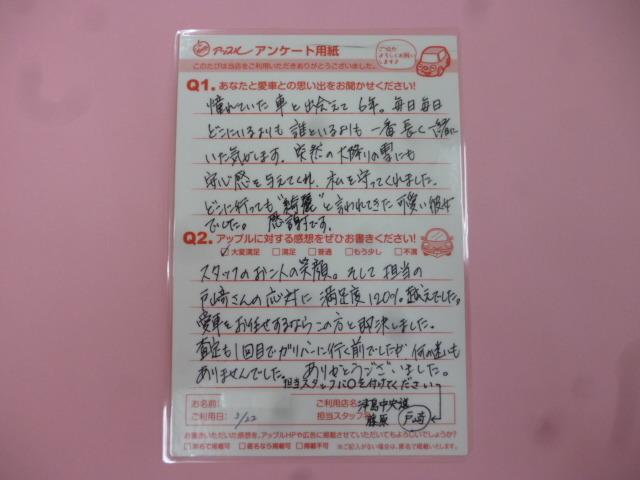 アップル アンケート用紙
ご協力よろしくお願いします♪
このたびは当店をご利用いただきありがとうございました。
Q1. あなたと愛車との思い出をお聞かせください!
憧れていた車と出会えて6年。毎日毎日
どこにいるよりも誰といるよりも一番長く一緒に
いた気がします。突然の大降りの雪にも
安心感を与えてくれ、私を守ってくれました。
どこに行っても"綺麗"と言われてきた可愛い彼女
でした。感謝です。
Q2. アップルに対する感想をぜひお書きください!
☑大変満足 □満足 □普通 □もう少し □不満
スタッフのお二人の笑顔。そして担当の
戸崎さんの応対に満足度120%越えでした。
愛車をお任せするならこの方と即決しました。
査定も1回目でガリバーに行く前でしたが何の迷いも
ありませんでした。ありがとうございました。
担当スタッフに○を付けてください
お名前:
ご利用店名:津島中央道
ご利用日: 3/22
担当スタッフ名: 藤原 戸崎
お書きいただいた感想を、アップルHPや広告に掲載させていただいてもよろしいでしょうか?
□実名で掲載可 □匿名なら掲載可 □掲載不可 ※ご記入がない場合は、匿名で掲載いたします。